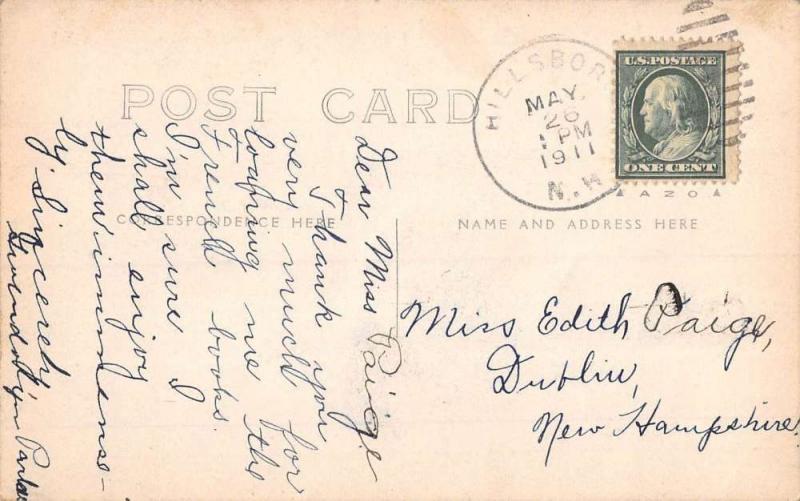 POST CARD
CORRESPONDENCE HERE
NAME AND ADDRESS HERE
HILLSBOR
MAY
26
1 PM
1911
N.H
U.S. POSTAGE
ONE CENT
AZO
Dear Miss Paige
I thank you
very much for
loaning me the
French books.
I'm sure I
shall enjoy
them immense-
ly. Sincerely
Gwendolyn Parker
Miss Edith Paige,
Dublin,
New Hampshire